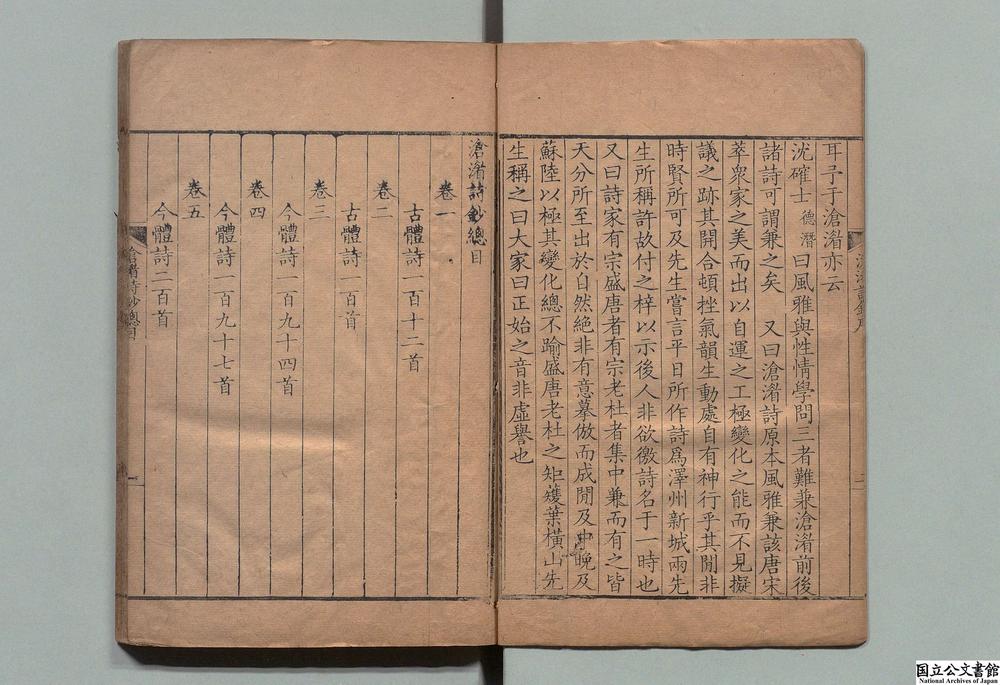 耳予于滄湄亦云
沈確士德潛曰風雅與性情學問三者難兼滄湄前後
諸詩可謂兼之矣　又曰滄湄詩原本風雅兼該唐宋
萃衆家之美而出以自運之工極變化之能而不見擬
議之跡其開合頓挫氣韻生動處自有神行乎其閒非
時賢所可及先生嘗言平日所作詩爲澤州新城兩先
生所稱許故付之梓以示後人非欲徼詩名于一時也
又曰詩家有宗盛唐者有宗老杜者集中兼而有之皆
天分所至出於自然絶非有意摹倣而成閒及中晚及
蘇陸以極其變化總不踰盛唐老杜之矩矱葉橫山先
生稱之曰大家曰正始之音非虛譽也
二
滄湄詩鈔總目
卷一
古體詩一百十二首
卷二
古體詩一百首
卷三
今體詩一百九十四首
卷四
今體詩一百九十七首
卷五
今體詩二百首
滄湄詩鈔總目
一
国立公文書館
National Archives of Japan